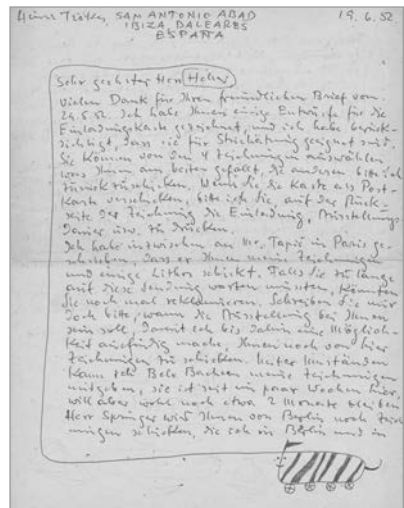 Heinz Trökes, SAN ANTONIO ABAD 19.6.52.
IBIZA BALEARES
ESPAÑA
Sehr geehrter Herr Heller
Vielen Dank für Ihren freundlichen Brief vom
24.5.52. Ich habe Ihnen einige Entwürfe für die
Einladungskarte gezeichnet, und ich habe berück-
sichtigt, dass sie für Strichätzung geeignet sind.
Sie können von den 4 Zeichnungen auswählen
was Ihnen am besten gefällt, die anderen bitte ich
zurückzuschicken. Wenn Sie die Karte als Post-
karte verschicken, bitte ich Sie, auf der Rück-
seite der Zeichnung die Einladung, Ausstellungs-
dauer usw. zu drucken.
Ich habe inzwischen an Tapié in Paris ge-
schrieben, dass er Ihnen meine Zeichnungen
und einige Lithos schickt. Falls Sie zu lange
auf diese Sendung warten müssten, könnten
Sie noch mal reklamieren. Schreiben Sie mir
doch bitte, wann die Ausstellung bei Ihnen
sein soll, damit ich bis dahin eine Möglich-
keit ausfindig mache, Ihnen noch von hier
Zeichnungen zu schicken. Unter Umständen
kann ich Bele Bachem meine Zeichnungen
mitgeben, sie ist seit ein paar Wochen hier,
will aber wohl noch etwa 2 Monate bleiben
Herr Springer wird Ihnen von Berlin noch Zeich
nungen schicken, die ich in Berlin und in